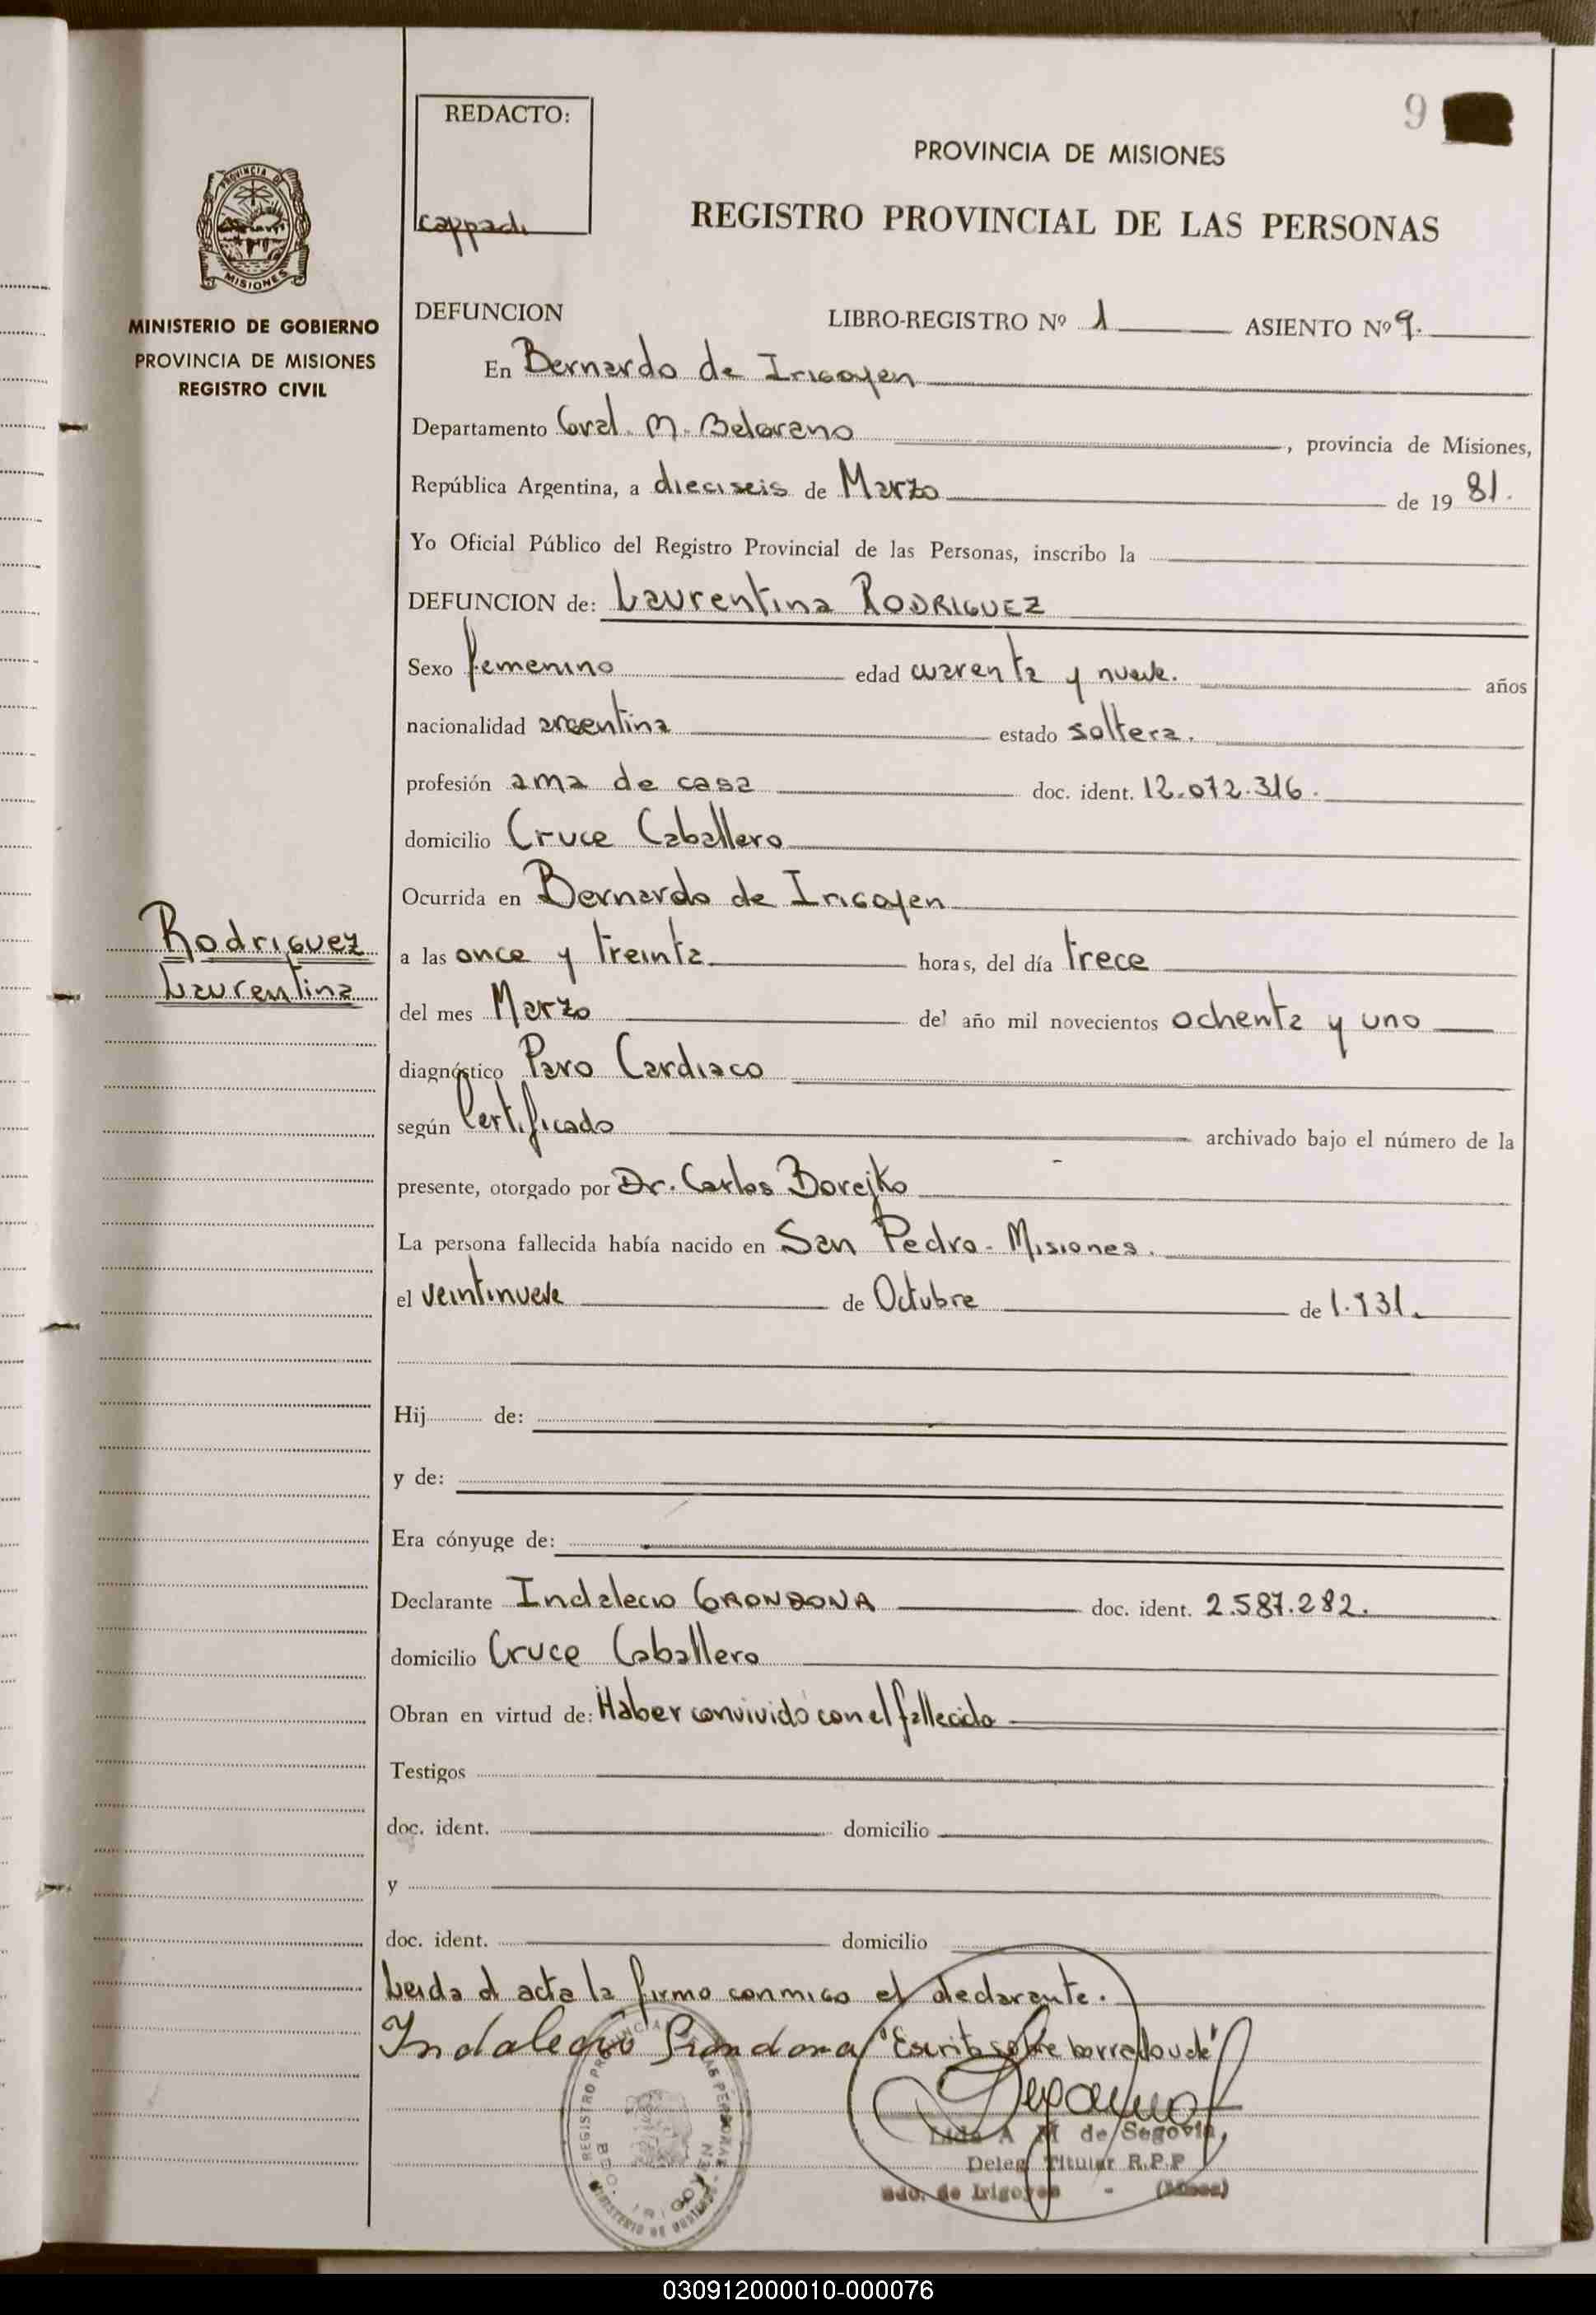 9
REDACTO:
PROVINCIA DE MISIONES
REGISTRO PROVINCIAL DE LAS PERSONAS
PROVINCIA DE
MISIONES
MINISTERIO DE GOBIERNO
PROVINCIA DE MISIONES
REGISTRO CIVIL
DEFUNCION LIBRO-REGISTRO Nº 1 ASIENTO Nº 9.
En Bernardo de Irigoyen
Departamento Gral. M. Belgrano, provincia de Misiones,
República Argentina, a dieciseis de Marzo de 19 81.
Yo Oficial Público del Registro Provincial de las Personas, inscribo la
DEFUNCION de: Laurentina RODRIGUEZ
Sexo femenino edad cuarenta y nueve. años
nacionalidad argentina estado soltera.
profesión ama de casa doc. ident. 12.072.316.
domicilio Cruce Caballero
Ocurrida en Bernardo de Irigoyen
Rodriguez
Laurentina
a las once y treinta horas, del día trece
del mes Marzo del año mil novecientos ochenta y uno
diagnóstico Paro Cardiaco
según Certificado archivado bajo el número de la
presente, otorgado por Dr. Carlos Borejko
La persona fallecida había nacido en San Pedro - Misiones.
el veintinueve de Octubre de 1.931.
Hij de:
y de:
Era cónyuge de:
Declarante Indalecio GRONDONA doc. ident. 2.587.282.
domicilio Cruce Caballero
Obran en virtud de: Haber convivido con el fallecido
Testigos
doc. ident. domicilio
y
doc. ident. domicilio
Leida el acta la firma conmigo el declarante.
Indalecio Grondona "Escrito sobre borrado
REGISTRO PROVINCIAL DE LAS PERSONAS
BDO. IRIGOYEN
MINISTERIO DE GOBIERNO
Lida A M de Segovia
Deleg Titular R.P.P
Bdo. de Irigoyen - (Mnes)
030912000010-000076